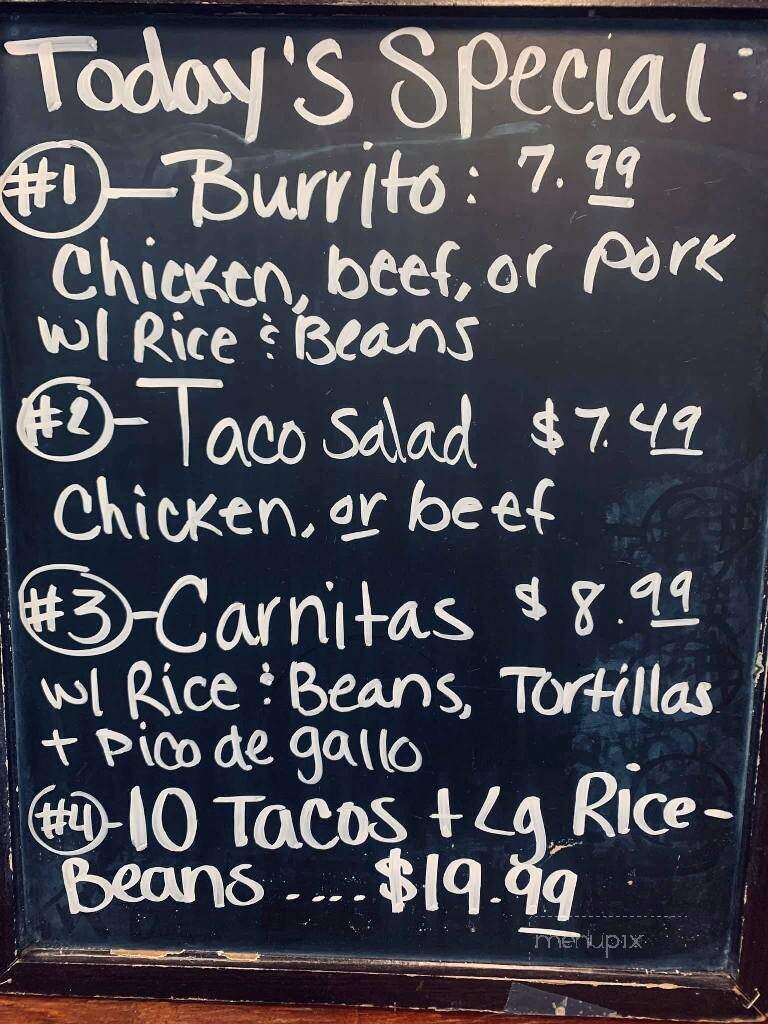 Today's Special:
#1 - Burrito: 7.99
Chicken, beef, or pork
w/ Rice & Beans
#2 - Taco Salad $7.49
Chicken, or beef
#3 - Carnitas $8.99
w/ Rice & Beans, Tortillas
+ Pico de gallo
#4 - 10 Tacos + Lg Rice-
Beans .... $19.99
menupix